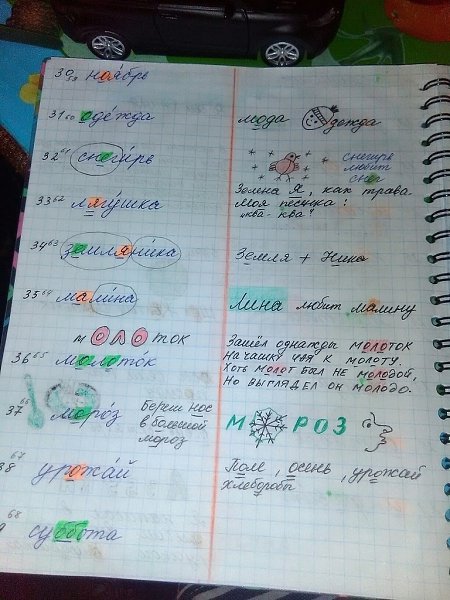 30 59 ноя́брь
31 60 оде́жда мода дежда
32 61 снеги́рь снегирь
любит
снег
33 62 лягу́шка Зелена Я, как трава
Моя песенка:
"ква-ква"
34 63 земляни́ка Земля + Ника
35 64 мали́на Лина любит малину
молоток
36 65 молото́к Зашёл однажды молоток
На чашку чая к молоту
Хоть молот был не молодой,
Но выглядел он молодо.
37 66 моро́з Береги нос
в большой
мороз
М РОЗ
38 67 урожа́й Поле, осень, урожай
хлеборобы
9 68 суббота